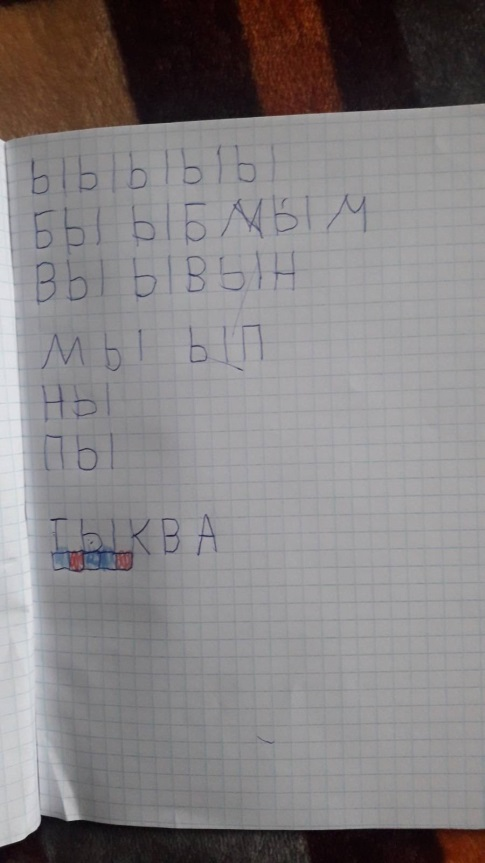 Ы Ы Ы Ы Ы
БЫ ЫБ МЫМ
ВЫ ЫВ ЫН
МЫ ЫП
НЫ
ПЫ
ТЫКВА